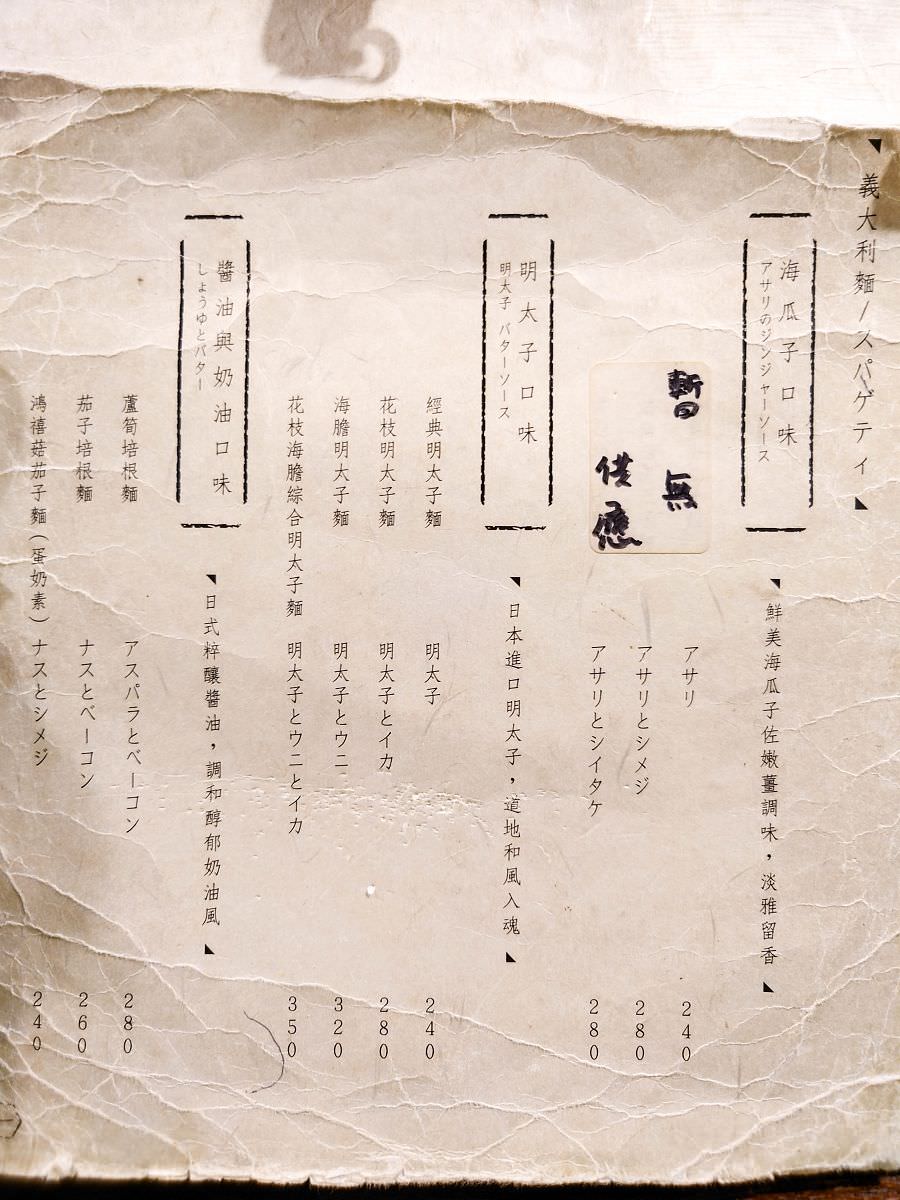 義大利麵/スパゲティ
海瓜子口味
アサリのジンジャーソース
鮮美海瓜子佐嫩薑調味,淡雅留香
暫時 無
供應
アサリ 240
アサリとシメジ 280
アサリとシイタケ 280
明太子口味
明太子 バターソース
日本進口明太子,道地和風入魂
經典明太子麵 明太子 240
花枝明太子麵 明太子とイカ 280
海膽明太子麵 明太子とウニ 320
花枝海膽綜合明太子麵 明太子とウニとイカ 350
醬油與奶油口味
しょうゆとバター
日式粹釀醬油,調和醇郁奶油風
蘆筍培根麵 アスパラとベーコン 280
茄子培根麵 ナスとベーコン 260
鴻禧菇茄子麵(蛋奶素) ナスとシメジ 240